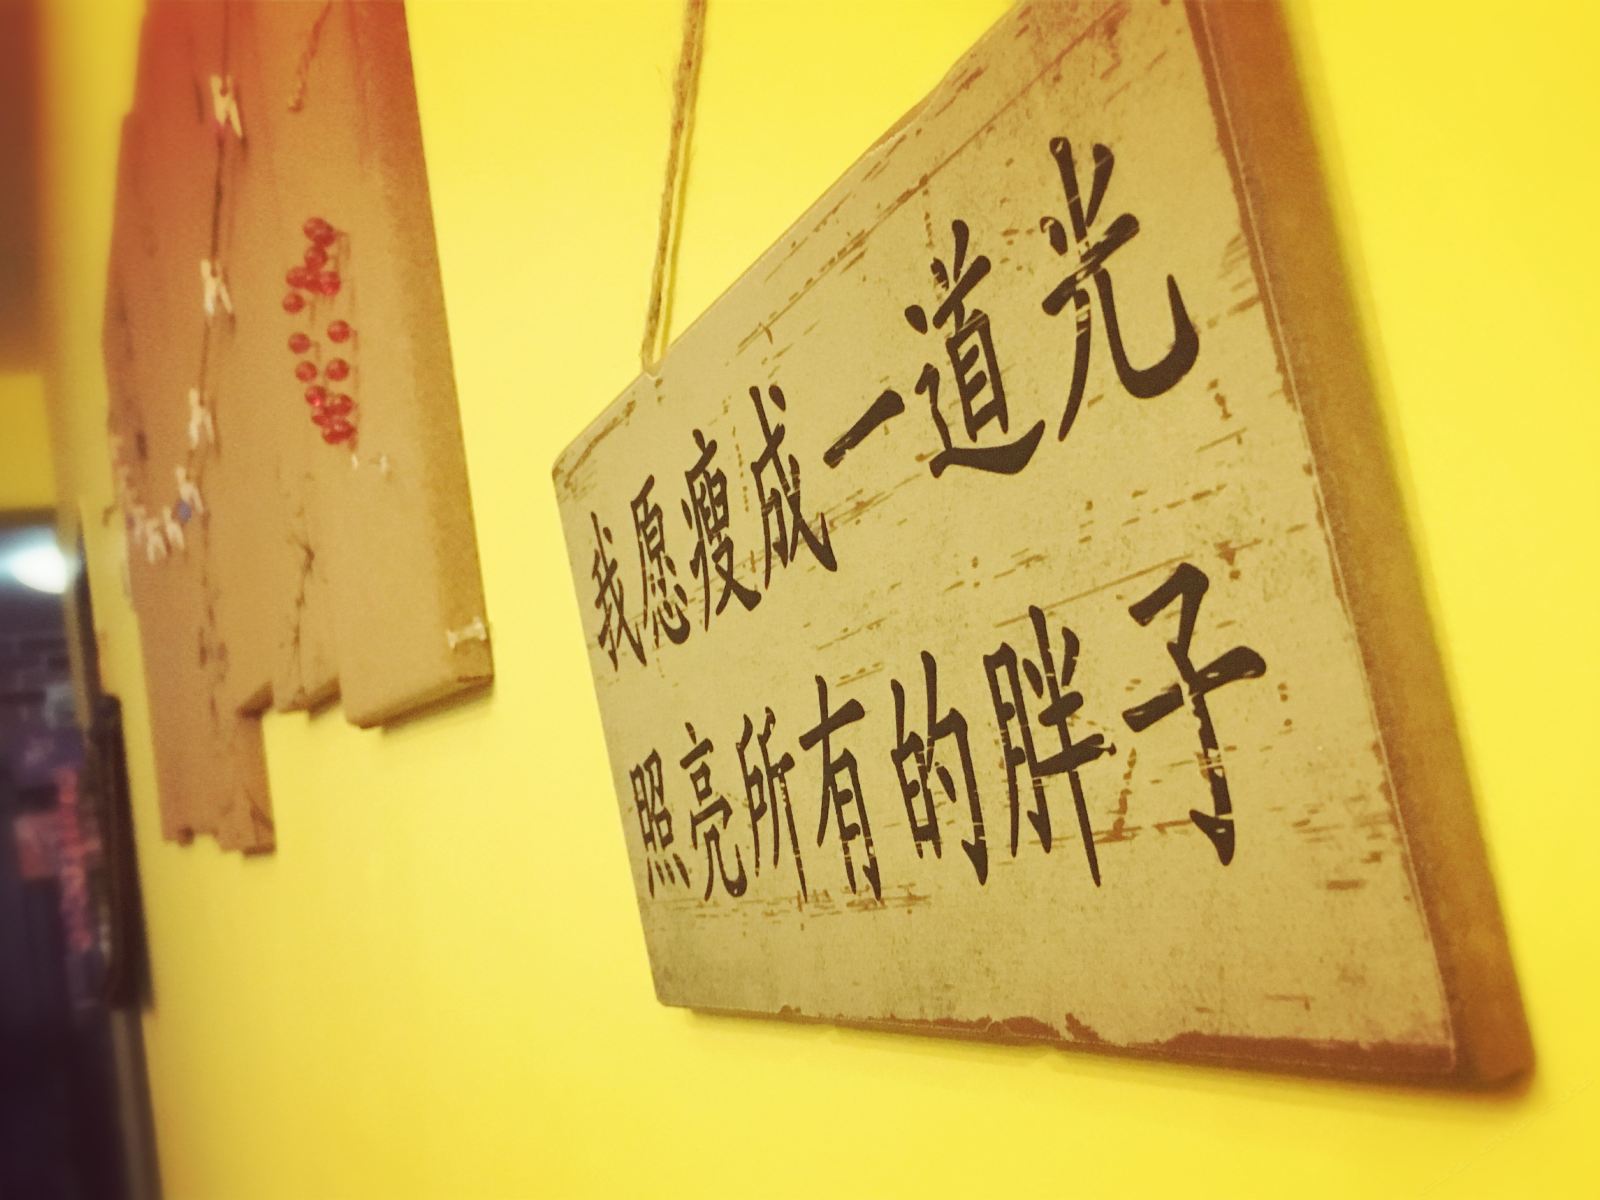 我愿瘦成一道光
照亮所有的胖子